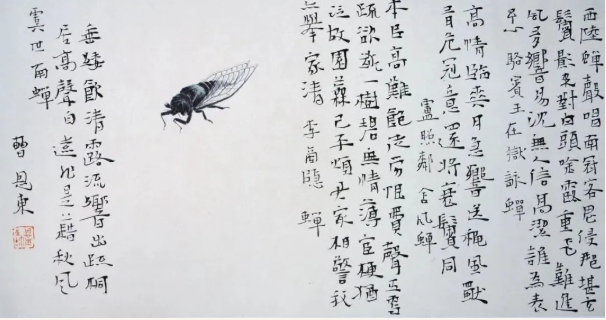 西陸蟬聲唱南冠客思侵那堪玄
鬢影來對白頭吟露重飛難進
風多響易沈無人信高潔誰為表
予心 駱賓王在獄詠蟬
高情臨爽月急響送秋風獨
有危冠意還將衰鬢同
盧照鄰 含風蟬
本以高難飽徒勞恨費聲五更
疏欲斷一樹碧無情薄宦梗猶
泛故園蕪已平煩君最相警我
亦舉家清 李商隱 蟬
垂緌飲清露流響出疏桐
居高聲自遠非是藉秋風
虞世南蟬
曹恩東